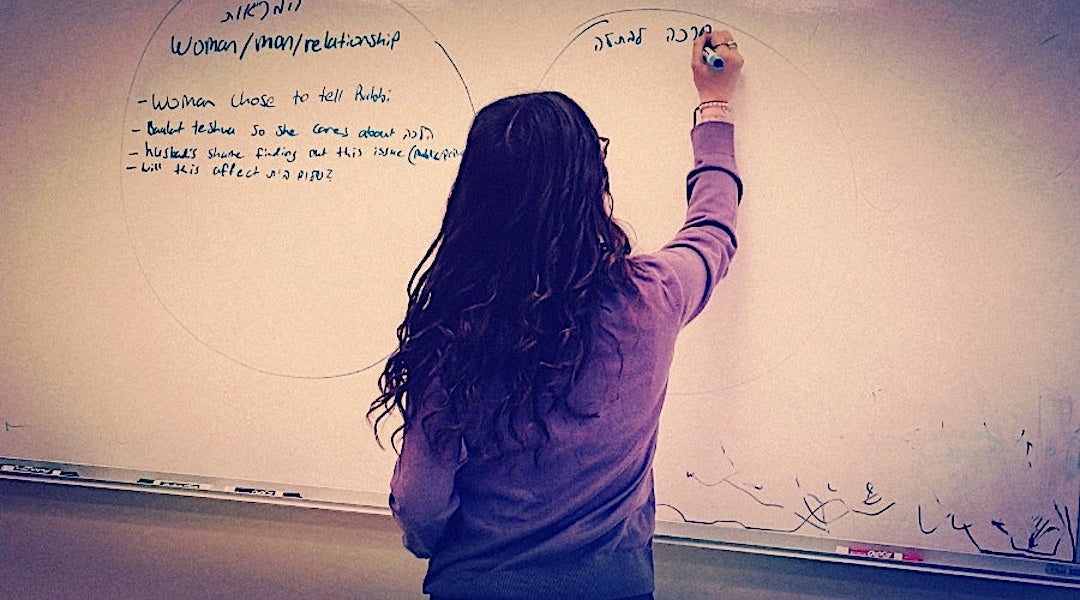 המציאות
Woman/man/relationship
- Woman chose to tell Rabbi
- Baalat teshuva so she cares about הלכה
- husband's shame finding out this issue (Public/Priv
- Will this affect שלום בית?
ברכה לבטלה